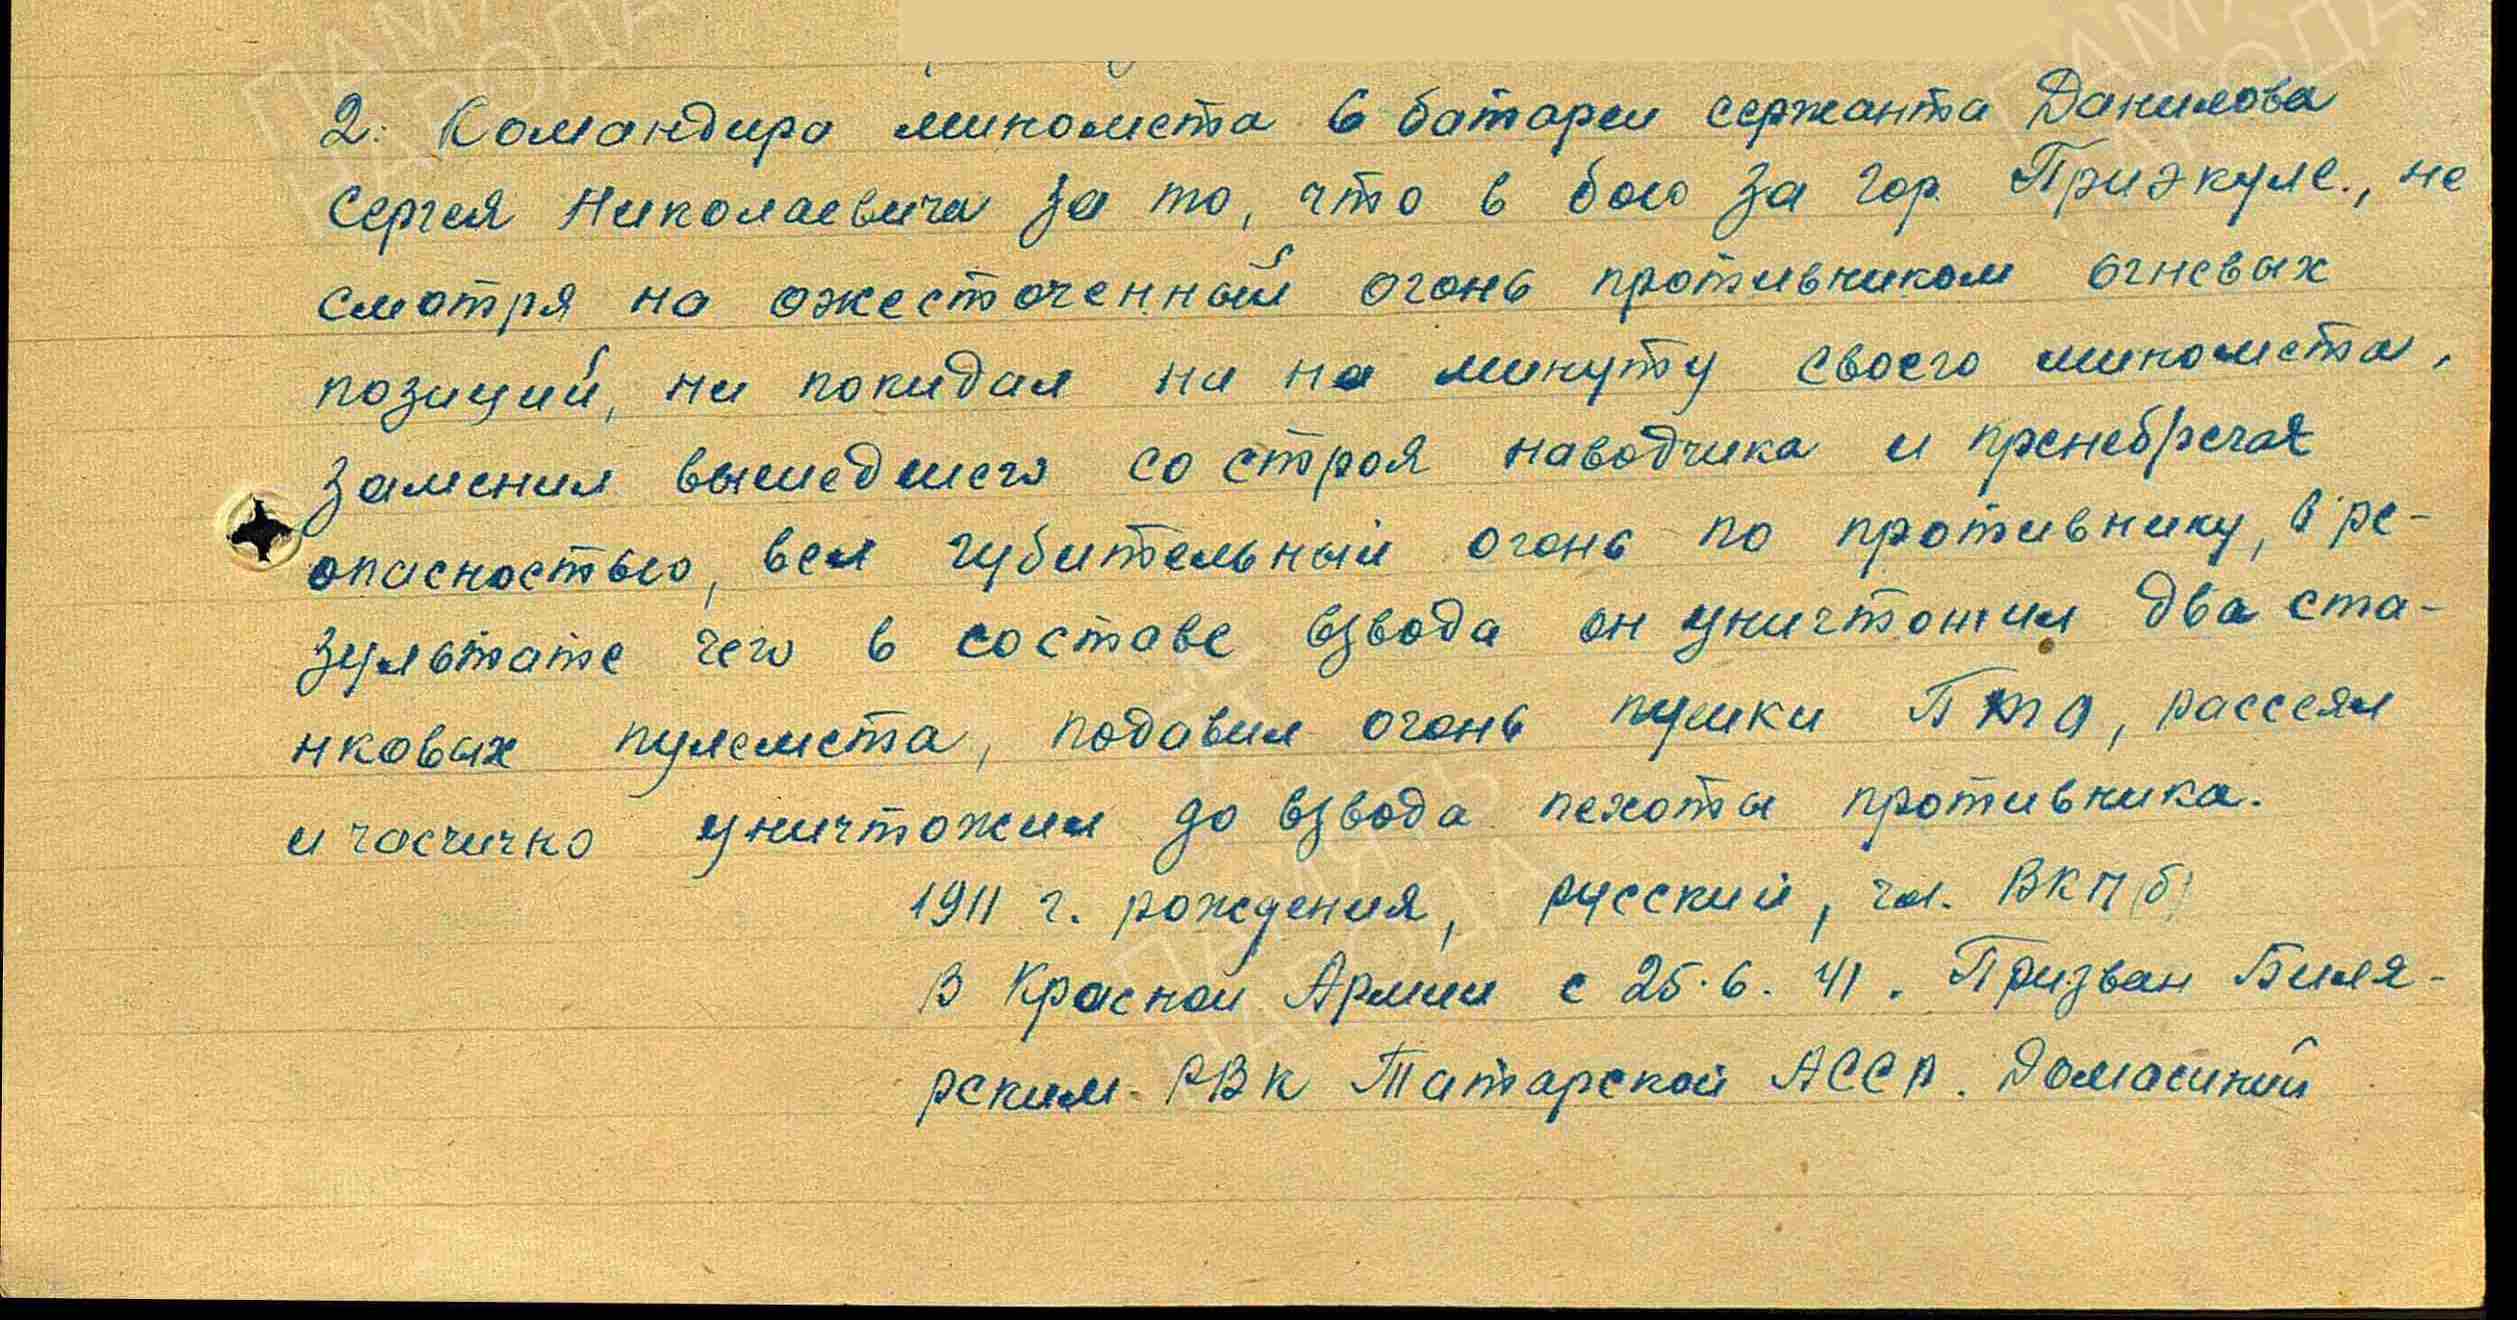 2. Командира миномета 6 батареи сержанта Данилова
Сергея Николаевича за то, что в бою за гор. Приэкуле., не
смотря на ожесточенный огонь противником огневых
позиций, ни покидал ни на минуту своего миномета,
заменил вышедшего со строя наводчика и пренебрегая
опасностью, вел губительный огонь по противнику, в ре-
зультате чего в составе взвода он уничтожил два ста-
нковых пулемета, подавил огонь пушки ПТО, рассеял
и часчично уничтожил до взвода пехоты противника.
1911 г. рождения, русский, чл. ВКП(б)
В Красной Армии с 25.6.41. Призван Биля-
рским РВК Татарской АССР. Домашний
ПАМЯТЬ
НАРОДА